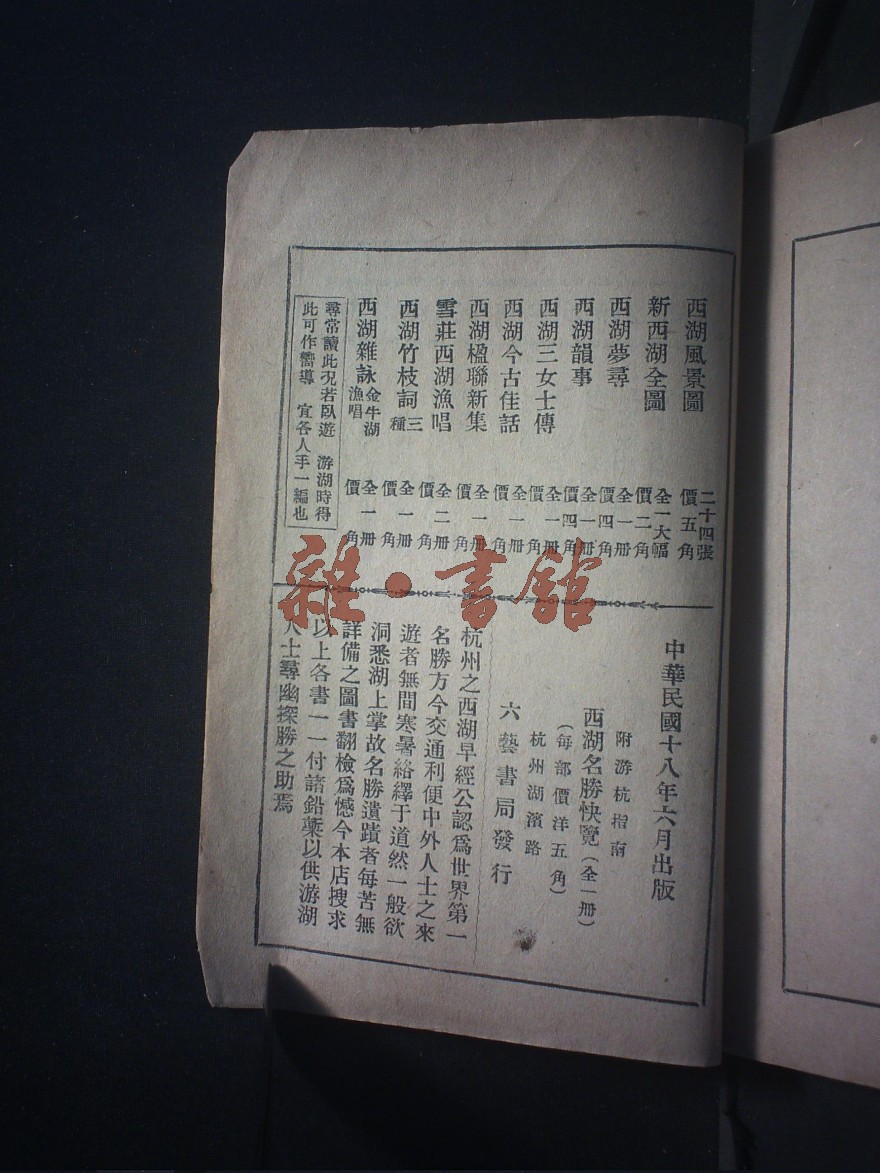 西湖風景圖 二十四張 價五角
新西湖全圖 全一大幅 價二角
西湖夢尋 全一冊 價四角
西湖韻事 全一冊 價四角
西湖三女士傳 全一冊 價一角
西湖今古佳話 全一冊 價一角
西湖楹聯新集 全一冊 價一角
雪莊西湖漁唱 全二冊 價二角
西湖竹枝詞三種 全一冊 價一角
西湖雜詠金牛湖漁唱 全一冊 價一角
尋常讀此況若臥遊 游湖時得
此可作嚮導 宜各人手一編也
中華民國十八年六月出版
附游杭指南
西湖名勝快覽(全一冊)
(每部價洋五角)
杭州湖濱路
六藝書局發行
杭州之西湖早經公認爲世界第一
名勝方今交通利便中外人士之來
遊者無間寒暑絡繹于道然一般欲
洞悉湖上掌故名勝遺蹟者每苦無
詳備之圖書翻檢爲憾今本店搜求
以上各書一一付諸鉛槧以供游湖
人士尋幽探勝之助焉
雜·書館